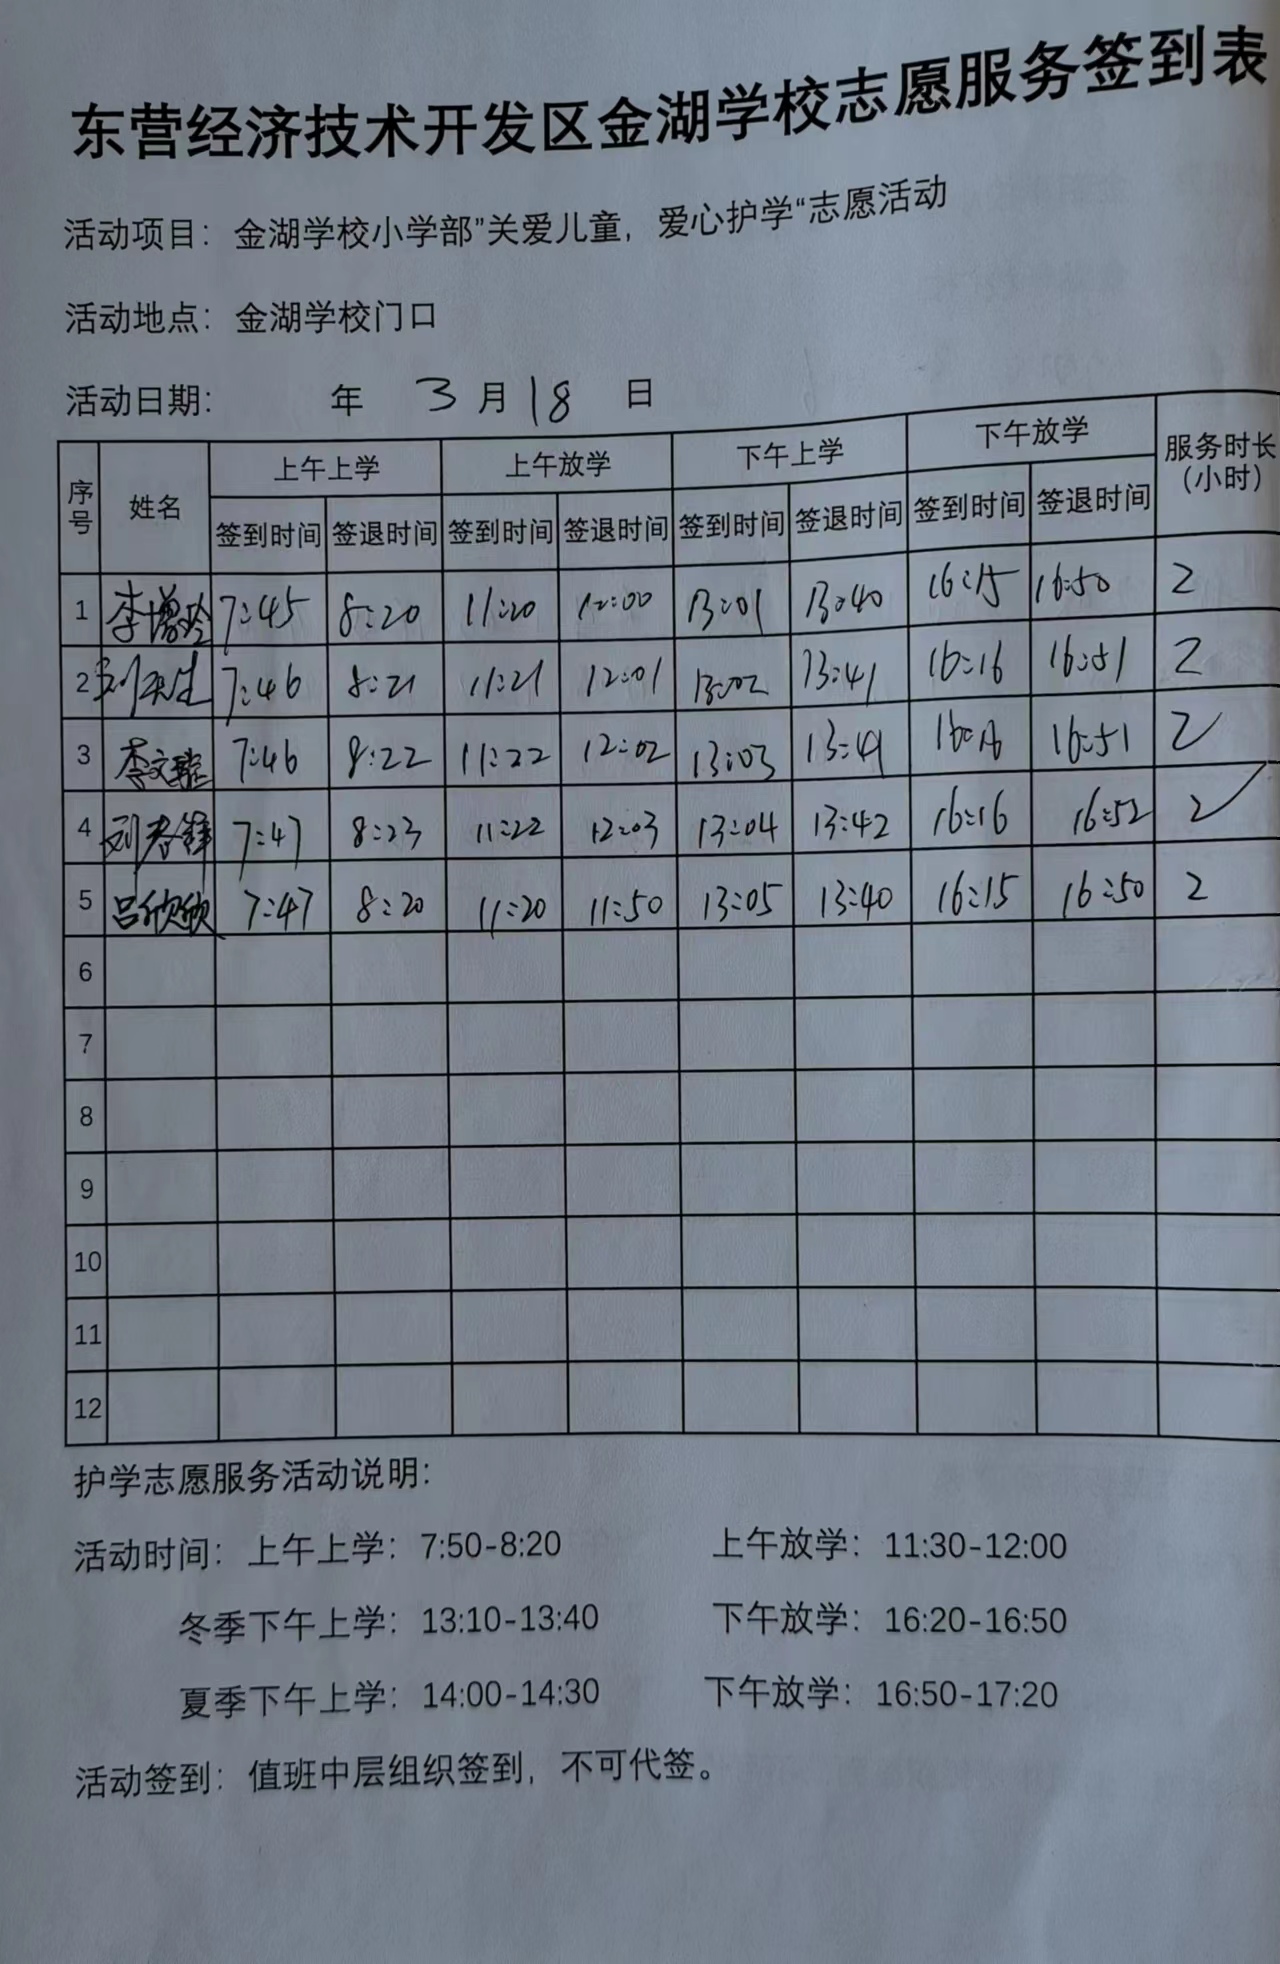 东营经济技术开发区金湖学校志愿服务签到表
活动项目：金湖学校小学部”关爱儿童，爱心护学“志愿活动
活动地点：金湖学校门口
活动日期： 年 3 月 18 日
序号 姓名 上午上学 上午放学 下午上学 下午放学 服务时长（小时）
签到时间 签退时间 签到时间 签退时间 签到时间 签退时间 签到时间 签退时间
1 李增玲 7:45 8:20 11:20 12:00 13:01 13:40 16:15 16:50 2
2 7:46 8:21 11:21 12:01 13:02 13:41 16:16 16:51 2
3 李文龍 7:46 8:22 11:22 12:02 13:03 13:41 16:16 16:51 2
4 刘春锋 7:47 8:23 11:22 12:03 13:04 13:42 16:16 16:52 2
5 吕欣欣 7:47 8:20 11:20 11:50 13:05 13:40 16:15 16:50 2
6
7
8
9
10
11
12
护学志愿服务活动说明：
活动时间：上午上学：7:50-8:20 上午放学：11:30-12:00
冬季下午上学：13:10-13:40 下午放学：16:20-16:50
夏季下午上学：14:00-14:30 下午放学：16:50-17:20
活动签到：值班中层组织签到，不可代签。